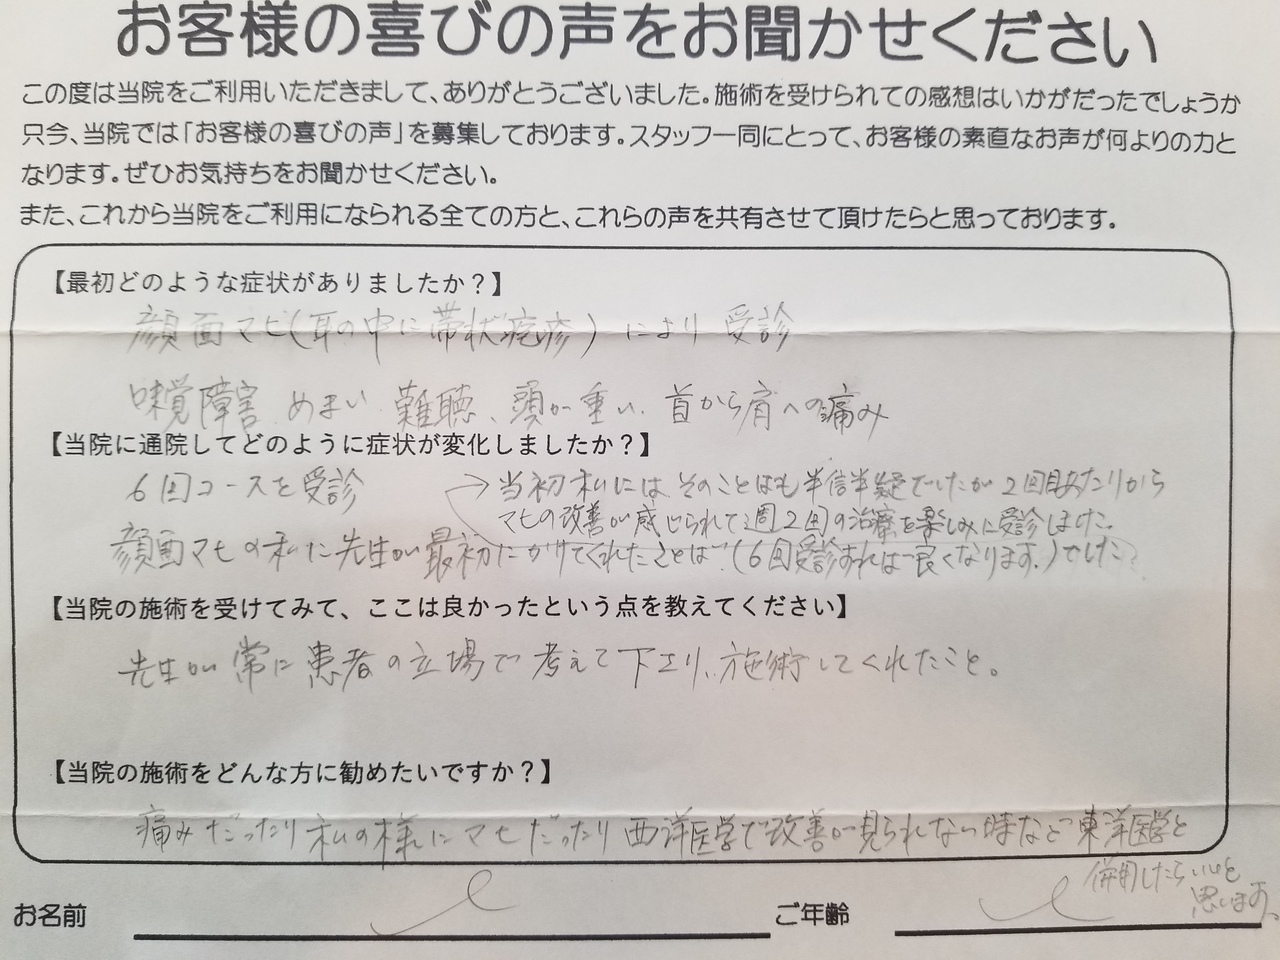 お客様の喜びの声をお聞かせください
この度は当院をご利用いただきまして、ありがとうございました。施術を受けられての感想はいかがだったでしょうか
只今、当院では「お客様の喜びの声」を募集しております。スタッフ一同にとって、お客様の素直なお声が何よりの力と
なります。ぜひお気持ちをお聞かせください。
また、これから当院をご利用になられる全ての方と、これらの声を共有させて頂けたらと思っております。
【最初どのような症状がありましたか？】
顔面マヒ(耳の中に帯状疱疹)により受診
味覚障害、めまい、難聴、頭が重い、首から肩への痛み
【当院に通院してどのように症状が変化しましたか？】
6回コースを受診
→当初私にはそのことばも半信半疑でしたが2回目あたりから
マヒの改善が感じられて週2回の治療を楽しみに受診しました。
顔面マヒの私に先生が最初にかけてくれたことば(6回受診すれば良くなります。)でした
【当院の施術を受けてみて、ここは良かったという点を教えてください】
先生が常に患者の立場で考えて下さり、施術してくれたこと。
【当院の施術をどんな方に勧めたいですか？】
痛みだったり私の様にマヒだったり西洋医学で改善が見られない時など東洋医学と
併用したらいいと
思います。
お名前
ご年齢